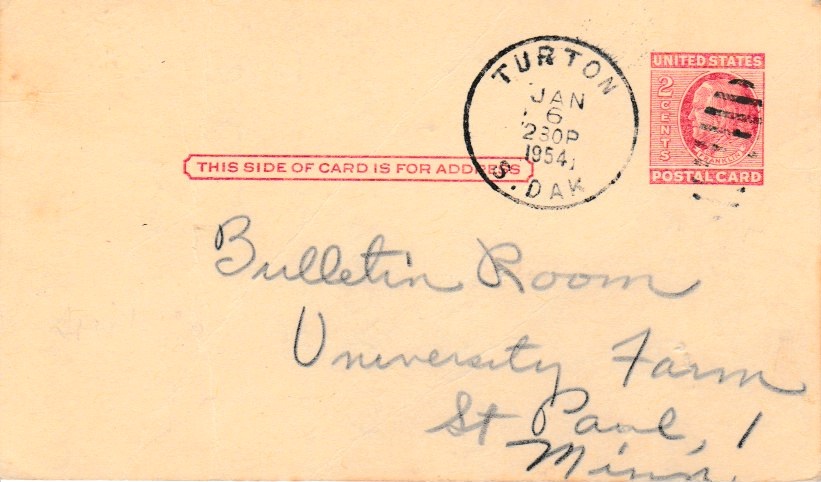 UNITED STATES
2 CENTS
FRANKLIN
POSTAL CARD
TURTON
JAN
6
230P
1954
S. DAK
THIS SIDE OF CARD IS FOR ADDRESS
Bulletin Room
University Farm
St Paul, 1
Minn.